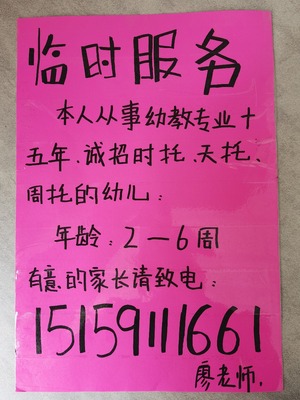 临时服务
本人从事幼教专业十
五年、诚招时托、天托、
周托的幼儿：
年龄：2—6周
有意的家长请致电：
15159111661
廖老师.